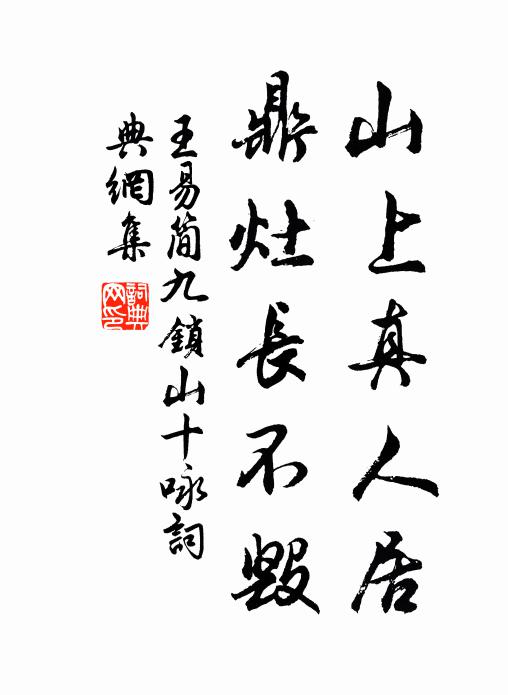 山上真人居
鼎灶長不毀
王易簡九鎖山十咏詞
典網集
詞典網印